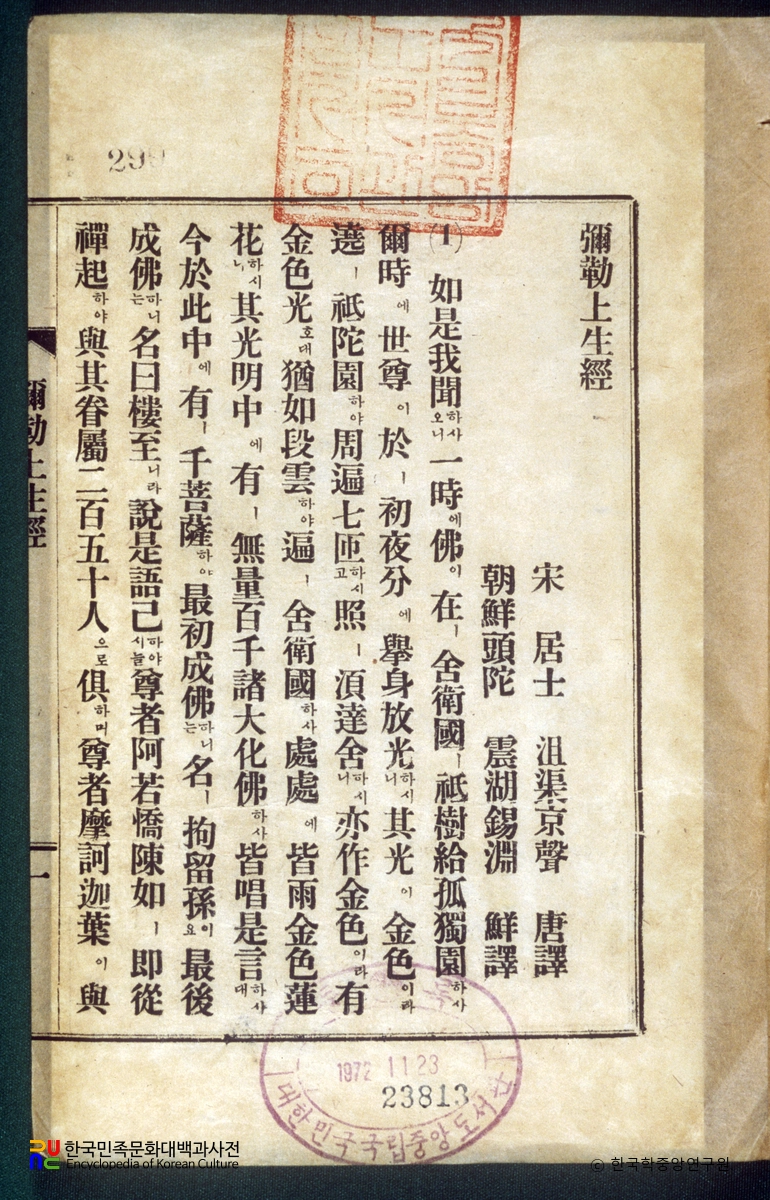 彌勒上生經
宋 居士 沮渠京聲 唐譯
朝鮮頭陀 震湖錫淵 鮮譯
(1) 如是我聞하사오니 一時에 佛이 在ㅣ 舍衛國ㅣ 祗樹給孤獨園하사
爾時에 世尊이 於ㅣ 初夜分에 擧身放光하시니 其光이 金色이라
遶ㅣ 祗陀園하야 周遍七匝하시고 照ㅣ 湏達舍하시니 亦作金色이라 有
金色光호대 猶如段雲하야 遍ㅣ 舍衛國하사 處處에 皆雨金色蓮
花하시니 其光明中에 有ㅣ 無量百千諸大化佛하사 皆唱是言하사대
今於此中에 有ㅣ 千菩薩하야 最初成佛하니는 名ㅣ 拘留孫이요 最後
成佛하니는 名曰樓至니라 說是語已하야시늘 尊者阿若憍陳如ㅣ 即從
禪起하야 與其眷屬二百五十人으로 俱하며 尊者摩訶迦葉이 與
彌勒上生經
一
1972 11 23
23813
대한민국국립중앙도서
한국민족문화대백과사전
Encyclopedia of Korean Culture
© 한국학중앙연구원